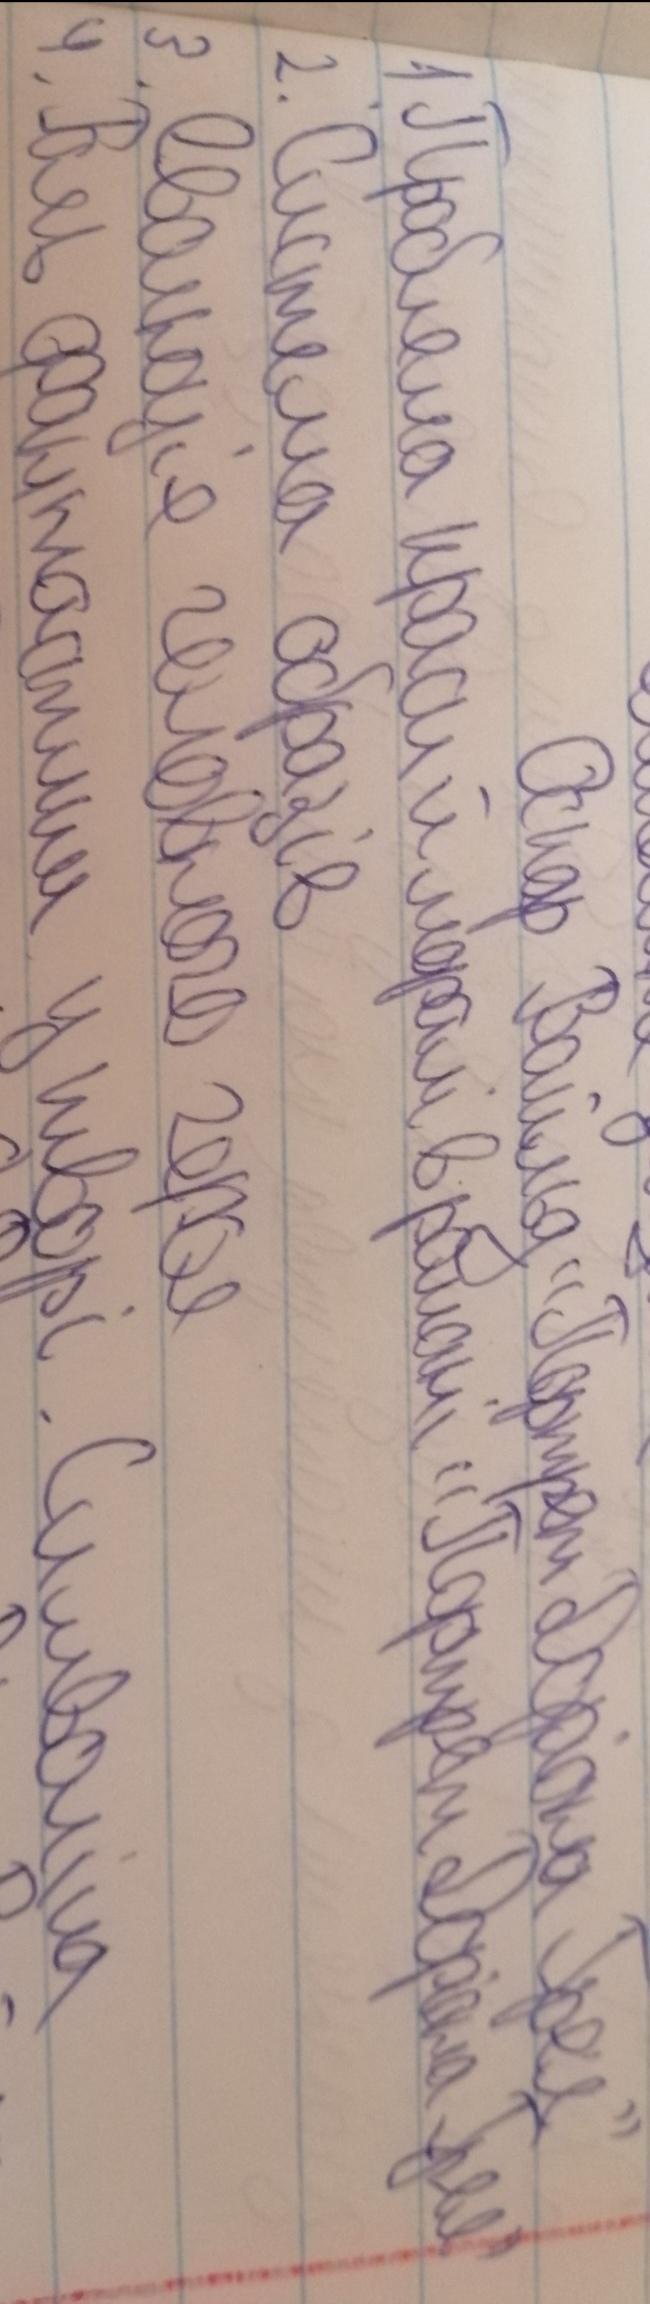 Оскар Вайльд „Портрет Доріана Грея"
1. Проблема краси й моралі в романі „Портрет Доріана Грея"
2. Система образів
3. Еволюція головного героя
4. Роль фантастики у творі. Символіка